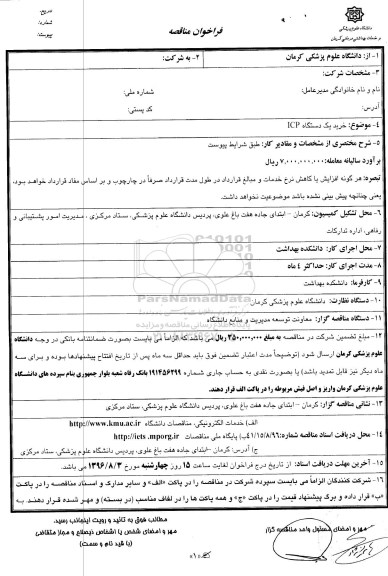 دانشگاه علوم پزشکی
و خدمات بهداشتی درمانی کرمان
تاریخ:
شماره:
پیوست:
فراخوان مناقصه
۱- از: دانشگاه علوم پزشکی کرمان
۲- به شرکت:
۳- مشخصات شرکت:
نام و نام خانوادگی مدیرعامل:
شماره ملی:
آدرس:
کد پستی:
۴- موضوع: خرید یک دستگاه ICP
۵- شرح مختصری از مشخصات و مقادیر کار: طبق شرایط پیوست
برآورد سالیانه معامله: ۷,۰۰۰,۰۰۰,۰۰۰ ریال
تبصره: هر گونه افزایش یا کاهش نرخ خدمات و مبالغ قرارداد در طول مدت قرارداد صرفاً در چارچوب و بر اساس مفاد قرارداد خواهد بود،
یعنی چنانچه پیش بینی نشده باشد موضوعیت نخواهد داشت.
۶- محل تشکیل کمیسیون: کرمان – ابتدای جاده هفت باغ علوی، پردیس دانشگاه علوم پزشکی، ستاد مرکزی، مدیریت امور پشتیبانی و
رفاهی، اداره تدارکات
۷- محل اجرای کار: دانشکده بهداشت
۸- مدت اجرای کار: حداکثر ۴ ماه
۹- کارفرما: دانشکده بهداشت
۱۰- دستگاه نظارت: دانشگاه علوم پزشکی کرمان
۱۱- دستگاه مناقصه گزار: معاونت توسعه مدیریت و منابع دانشگاه
۱۲- مبلغ تضمین شرکت در مناقصه به مبلغ ۳۵۰,۰۰۰,۰۰۰ ریال می باشد که الزاماً می بایست بصورت ضمانتنامه بانکی در وجه دانشگاه
علوم پزشکی کرمان ارسال شود (توضیحاً مدت اعتبار تضمین فوق باید حداقل سه ماه پس از تاریخ افتتاح پیشنهادها بوده و برای سه
ماه دیگر نیز قابل تمدید باشد) یا بصورت نقدی به حساب جاری شماره ۱۹۱۴۵۶۲۹۹ بانک رفاه شعبه بلوار جمهوری بنام سپرده های دانشگاه
علوم پزشکی کرمان واریز و اصل فیش مربوطه را در پاکت الف قرار دهند.
۱۳- نشانی مناقصه گزار: کرمان – ابتدای جاده هفت باغ علوی، پردیس دانشگاه علوم پزشکی، ستاد مرکزی
الف) خدمات الکترونیکی، مناقصات دانشگاه http://www.kmu.ac.ir
۱۴- محل دریافت اسناد مناقصه شماره: ۴۱/۱۵/۸/۹۶ ب) پایگاه ملی مناقصات http://iets.mporg.ir
ج) آدرس: کرمان – ابتدای جاده هفت باغ علوی، پردیس دانشگاه علوم پزشکی، ستاد مرکزی
۱۵- آخرین مهلت دریافت اسناد: از تاریخ درج فراخوان لغایت ساعت ۱۵ روز چهارشنبه مورخ ۱۳۹۶/۸/۳ می باشد.
۱۶- شرکت کنندگان الزاماً می بایست سپرده شرکت در مناقصه را در پاکت «الف» و سایر مدارک و اسناد مناقصه را در پاکت
«ب» قرار داده و برگ پیشنهاد قیمت را در پاکت «ج» و همه پاکت ها را در لفاف مناسب (در بسته) و مهر شده قرار دهند. به
مهر و امضای مسئول واحد مناقصه گزار
مطالب فوق به تائید و رویت اینجانب رسید.
مهر و امضای شخص یا اشخاص ذیصلاح و مجاز متقاضی
(با قید نام و سمت)
ParsNamadData